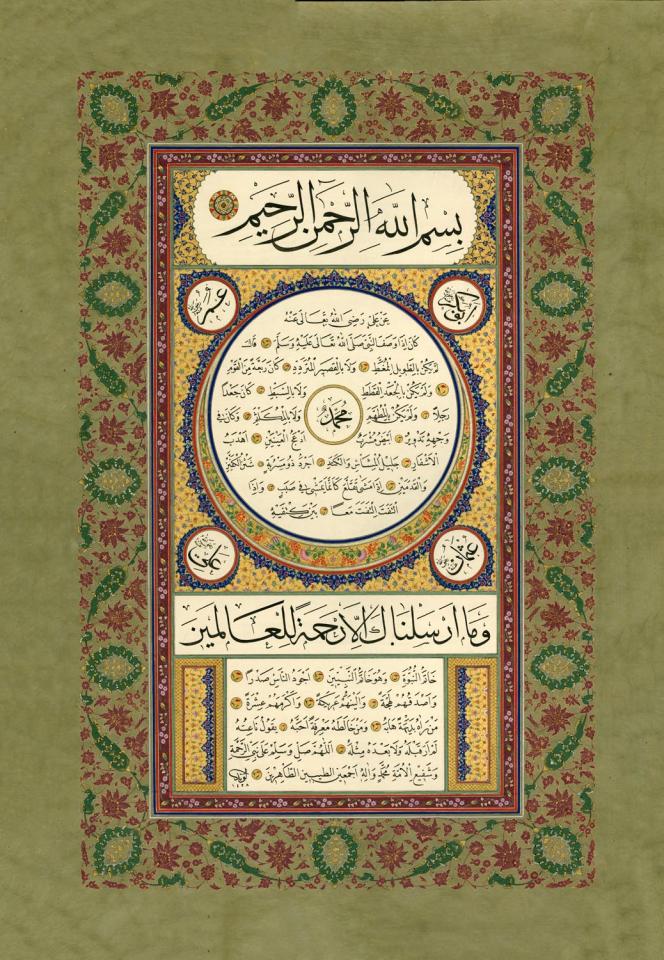 بِسْمِ اللهِ الرَّحْمٰنِ الرَّحِيْمِ
ابوبكر
عمر
عَنْ عَلِيٍّ رَضِيَ اللهُ تَعَالَى عَنْهُ
كَانَ إِذَا وَصَفَ النَّبِيَّ صَلَّى اللهُ تَعَالَى عَلَيْهِ وَسَلَّمَ قَالَ
لَمْ يَكُنْ بِالطَّوِيلِ الْمُمَّغِطِ وَلَا بِالْقَصِيرِ الْمُتَرَدِّدِ كَانَ رَبْعَةً مِنَ الْقَوْمِ
وَلَمْ يَكُنْ بِالْجَعْدِ الْقَطَطِ وَلَا بِالسَّبِطِ كَانَ جَعْدًا
رَجِلًا وَلَمْ يَكُنْ بِالْمُطَهَّمِ محمد وَلَا بِالْمُكَلْثَمِ وَكَانَ فِي
وَجْهِهِ تَدْوِيرٌ أَبْيَضُ مُشْرَبٌ أَدْعَجُ الْعَيْنَيْنِ أَهْدَبُ
الْأَشْفَارِ جَلِيلُ الْمُشَاشِ وَالْكَتَدِ أَجْرَدُ ذُو مَسْرُبَةٍ شَثْنُ الْكَفَّيْنِ
وَالْقَدَمَيْنِ إِذَا مَشَى تَقَلَّعَ كَأَنَّمَا يَمْشِي فِي صَبَبٍ وَإِذَا
الْتَفَتَ الْتَفَتَ مَعًا بَيْنَ كَتِفَيْهِ
عثمان
علي
وَمَا أَرْسَلْنَاكَ إِلَّا رَحْمَةً لِلْعَالَمِينَ
خَاتَمُ النُّبُوَّةِ وَهُوَ خَاتَمُ النَّبِيِّينَ أَجْوَدُ النَّاسِ صَدْرًا
وَأَصْدَقُهُمْ لَهْجَةً وَأَلْيَنُهُمْ عَرِيكَةً وَأَكْرَمُهُمْ عِشْرَةً
مَنْ رَآهُ بَدِيهَةً هَابَهُ وَمَنْ خَالَطَهُ مَعْرِفَةً أَحَبَّهُ يَقُولُ نَاعِتُهُ
لَمْ أَرَ قَبْلَهُ وَلَا بَعْدَهُ مِثْلَهُ اللَّهُمَّ صَلِّ وَسَلِّمْ عَلَى نَبِيِّ الرَّحْمَةِ
وَشَفِيعِ الْأُمَّةِ مُحَمَّدٍ وَآلِهِ أَجْمَعِينَ الطَّيِّبِينَ الطَّاهِرِينَ
١٤٢٨